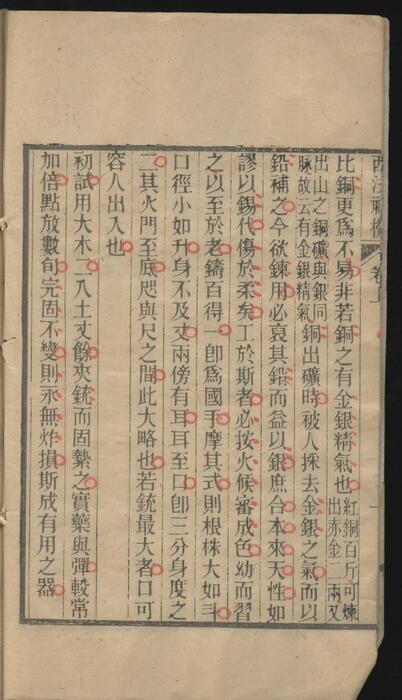 西洋神機 卷上
比銅更爲不易非若銅之有金銀精氣也
紅銅百斤可煉
出赤金二兩又
出山之銅礦與銀同
脉故云有金銀精氣
銅出礦時被人採去金銀之氣而以
鉛補之今欲鍊用必裒其鉛而益以銀庶合本來天性如
謬以錫代傷於柔矣工於斯者必按火候審成色幼而習
之以至於老鑄百得一卽爲國手摩其式則根株大如斗
口徑小如升身不及丈兩傍有耳耳至口卽三分身度之
二其火門至底咫與尺之間此大略也若銃最大者口可
容人出入也
初試用大木二入土丈餘夾銃而固縶之實藥與彈較常
加倍點放數旬完固不變則永無炸損斯成有用之器